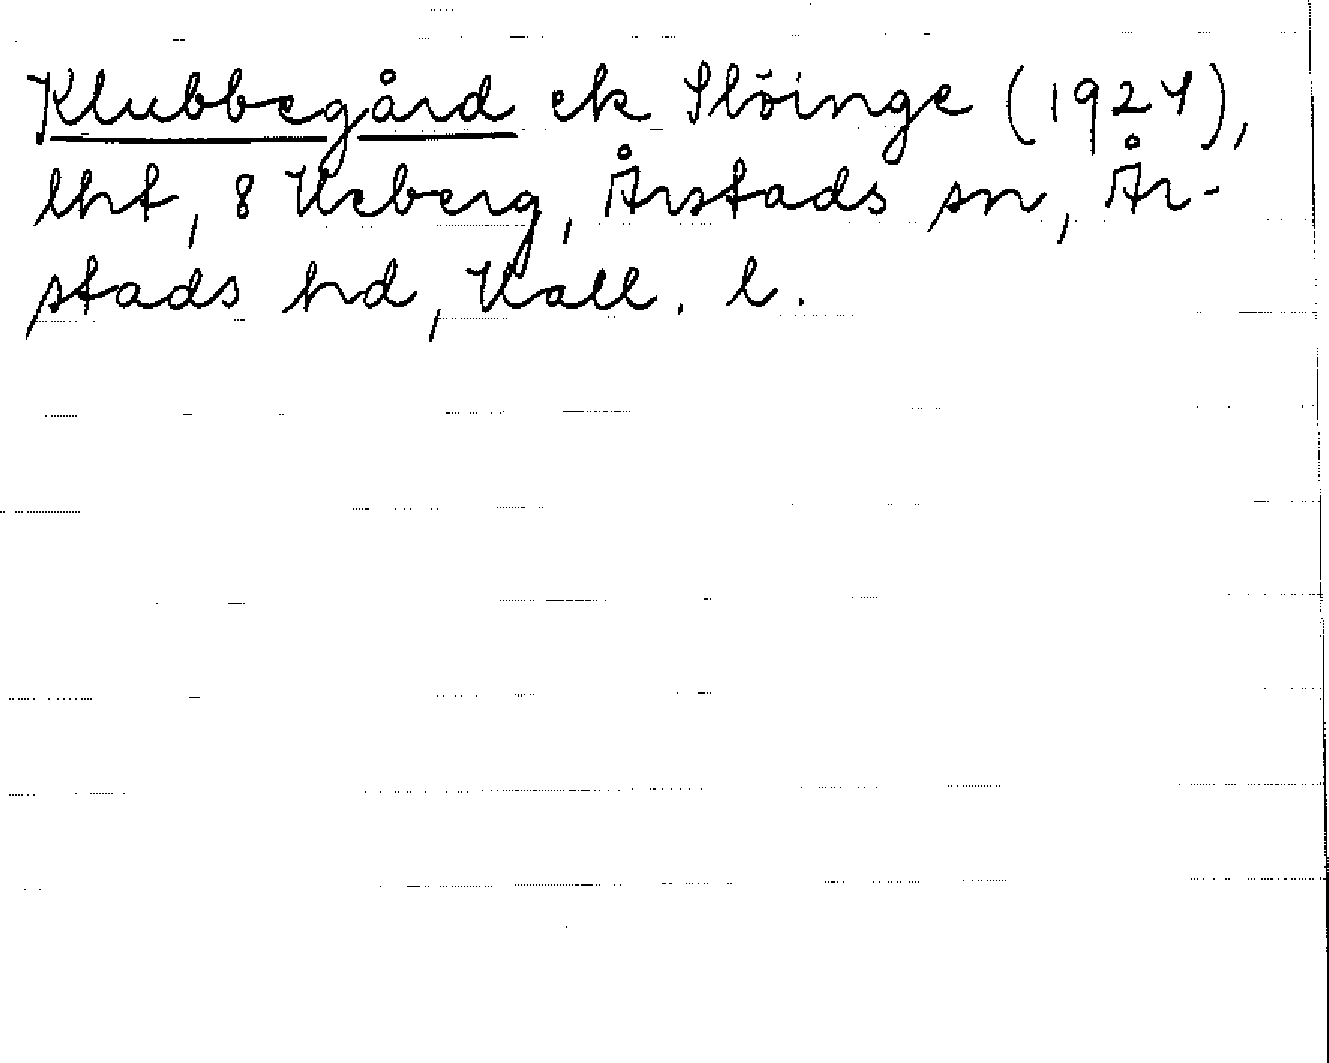 Klubbegård ek Slöinge (1927),
lht, 8 Heberg, Årstads sn, År-
stads hd, Hall. l.